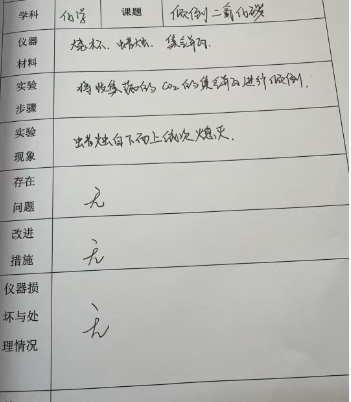 学科 化学 课题 倾倒二氧化碳
仪器材料 烧杯、蜡烛、集气瓶
实验步骤 将收集满的CO2的集气瓶进行倾倒.
实验现象 蜡烛自下而上依次熄灭.
存在问题 无
改进措施 无
仪器损坏与处理情况 无